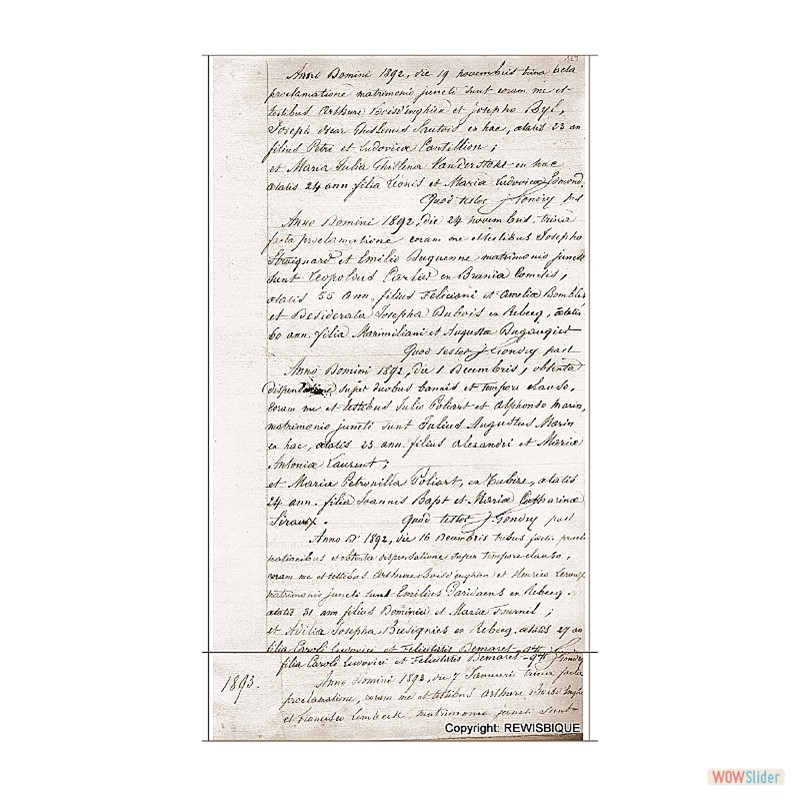 Anno Domini 1892, die 19 novembris trina facta
proclamatione matrimonio juncti sunt coram me et
testibus Arthuri Boisd'enghien et Josepho Byl,
Joseph Oscar Ghislenus Sautois ex hac, ætatis 23 an
filius Petri et Ludovica Cantillion ;
et Maria Julia Ghislena Vanderstokt ex hac
ætatis 24 ann. filia Leonis et Maria Ludovica Edmond.
Quod testor J. Gondry past
Anno Domini 1892, die 24 novembris, trina
facta proclamatione coram me et testibus Josepho
et Emilio Duquenne matrimonio juncti
sunt Leopoldus Carlier ex Brania Comitis,
ætatis 55 ann. filius Feliciani et Amelia Bomblet
et Desiderata Josepha Dubois ex Rebecq, ætatis
60 ann. filia Maximiliani et Augusta
Quod testor J. Gondry past
Anno Domini 1892, die 1 Decembris, obtenta
dispensatione super duobus bannis et tempore clauso,
coram me et testibus Julio Poliart et Alphonso Marin,
matrimonio juncti sunt Julius Augustus Marin
ex hac, ætatis 23 ann. filius Alexandri et Mariæ
Antoniæ Laurent ;
et Maria Petronilla Poliart, ex Tubize, ætatis
24 ann. filia Joannis Bapt et Maria Catharinæ
Siraux. Quod testor J. Gondry past
Anno D 1892, die 16 Decembris tribus factis procla
mationibus et obtenta dispensatione super tempore clauso,
coram me et testibus Arthure Boisd'enghien et Henrico Leroux
matrimonio juncti sunt Emilius Daridaens ex Rebecq.
ætatis 31 ann filius Dominici et Maria Fournil ;
et Adilia Josepha Busignies ex Rebecq. ætatis 27 an
filia Caroli Ludovici et Felicitatis Demaret
filia Caroli Ludovici et Felicitatis Demaret J. Gondry
1893.
Anno Domini 1893, die 7 Januarii trina facta
proclamatione, coram me et testibus Arthure Boisd'Enghi
et Francisco Lembeck, matrimonio juncti sunt
Copyright: REWISBIQUE
WOWSlider